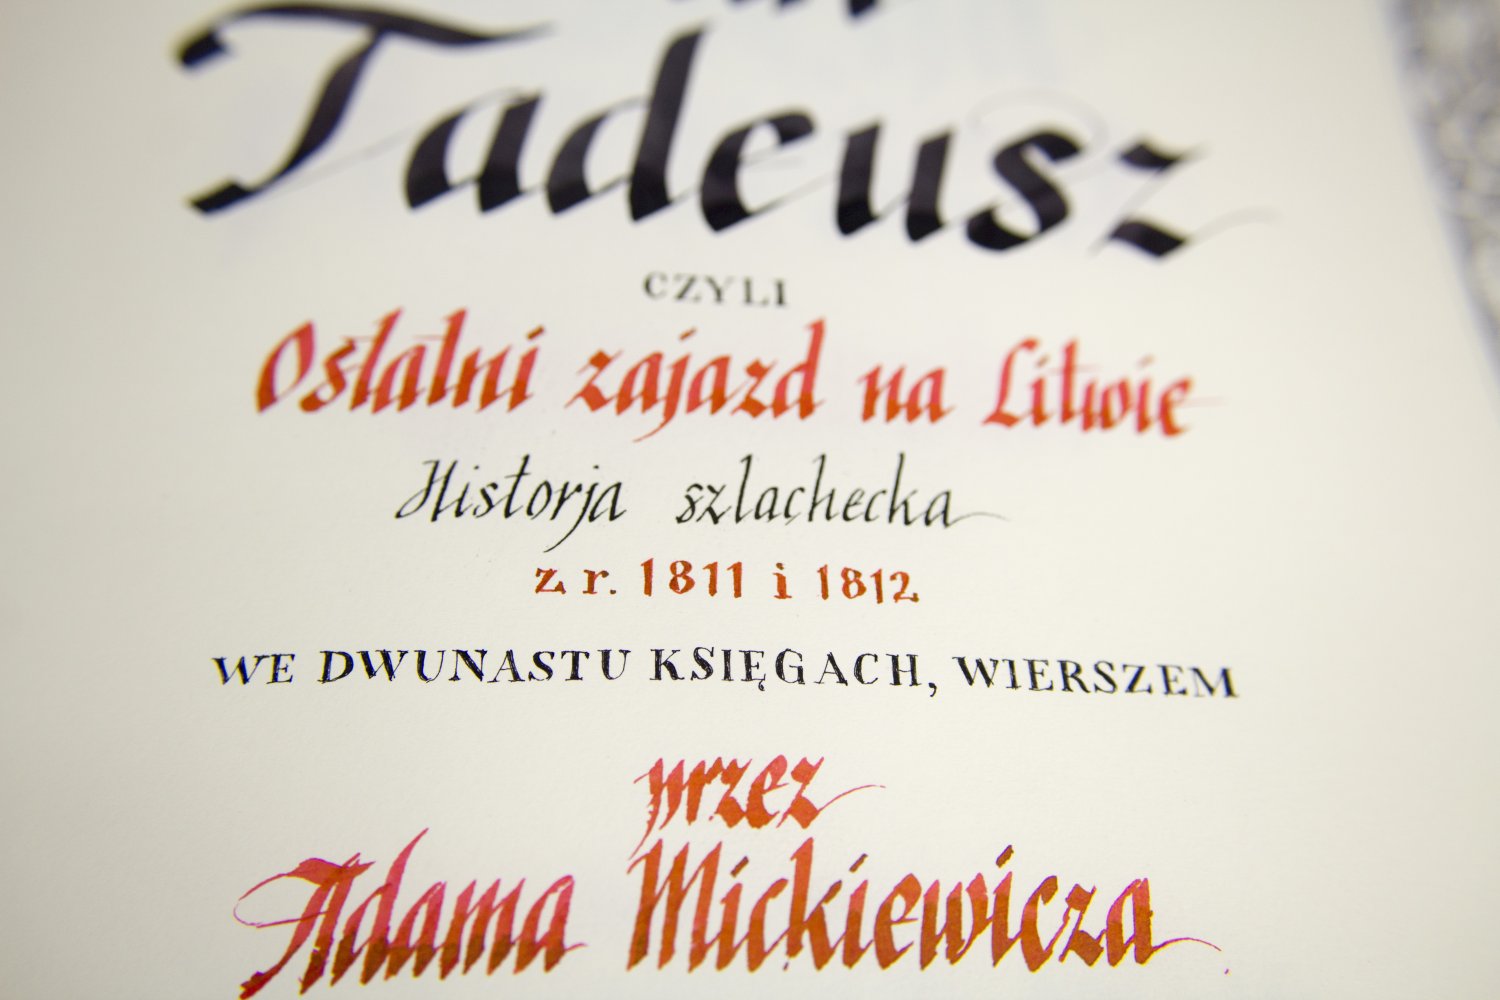 Tadeusz
CZYLI
Ostatni zajazd na Litwie
Historja szlachecka
z r. 1811 i 1812
WE DWUNASTU KSIĘGACH, WIERSZEM
przez
Adama Mickiewicza